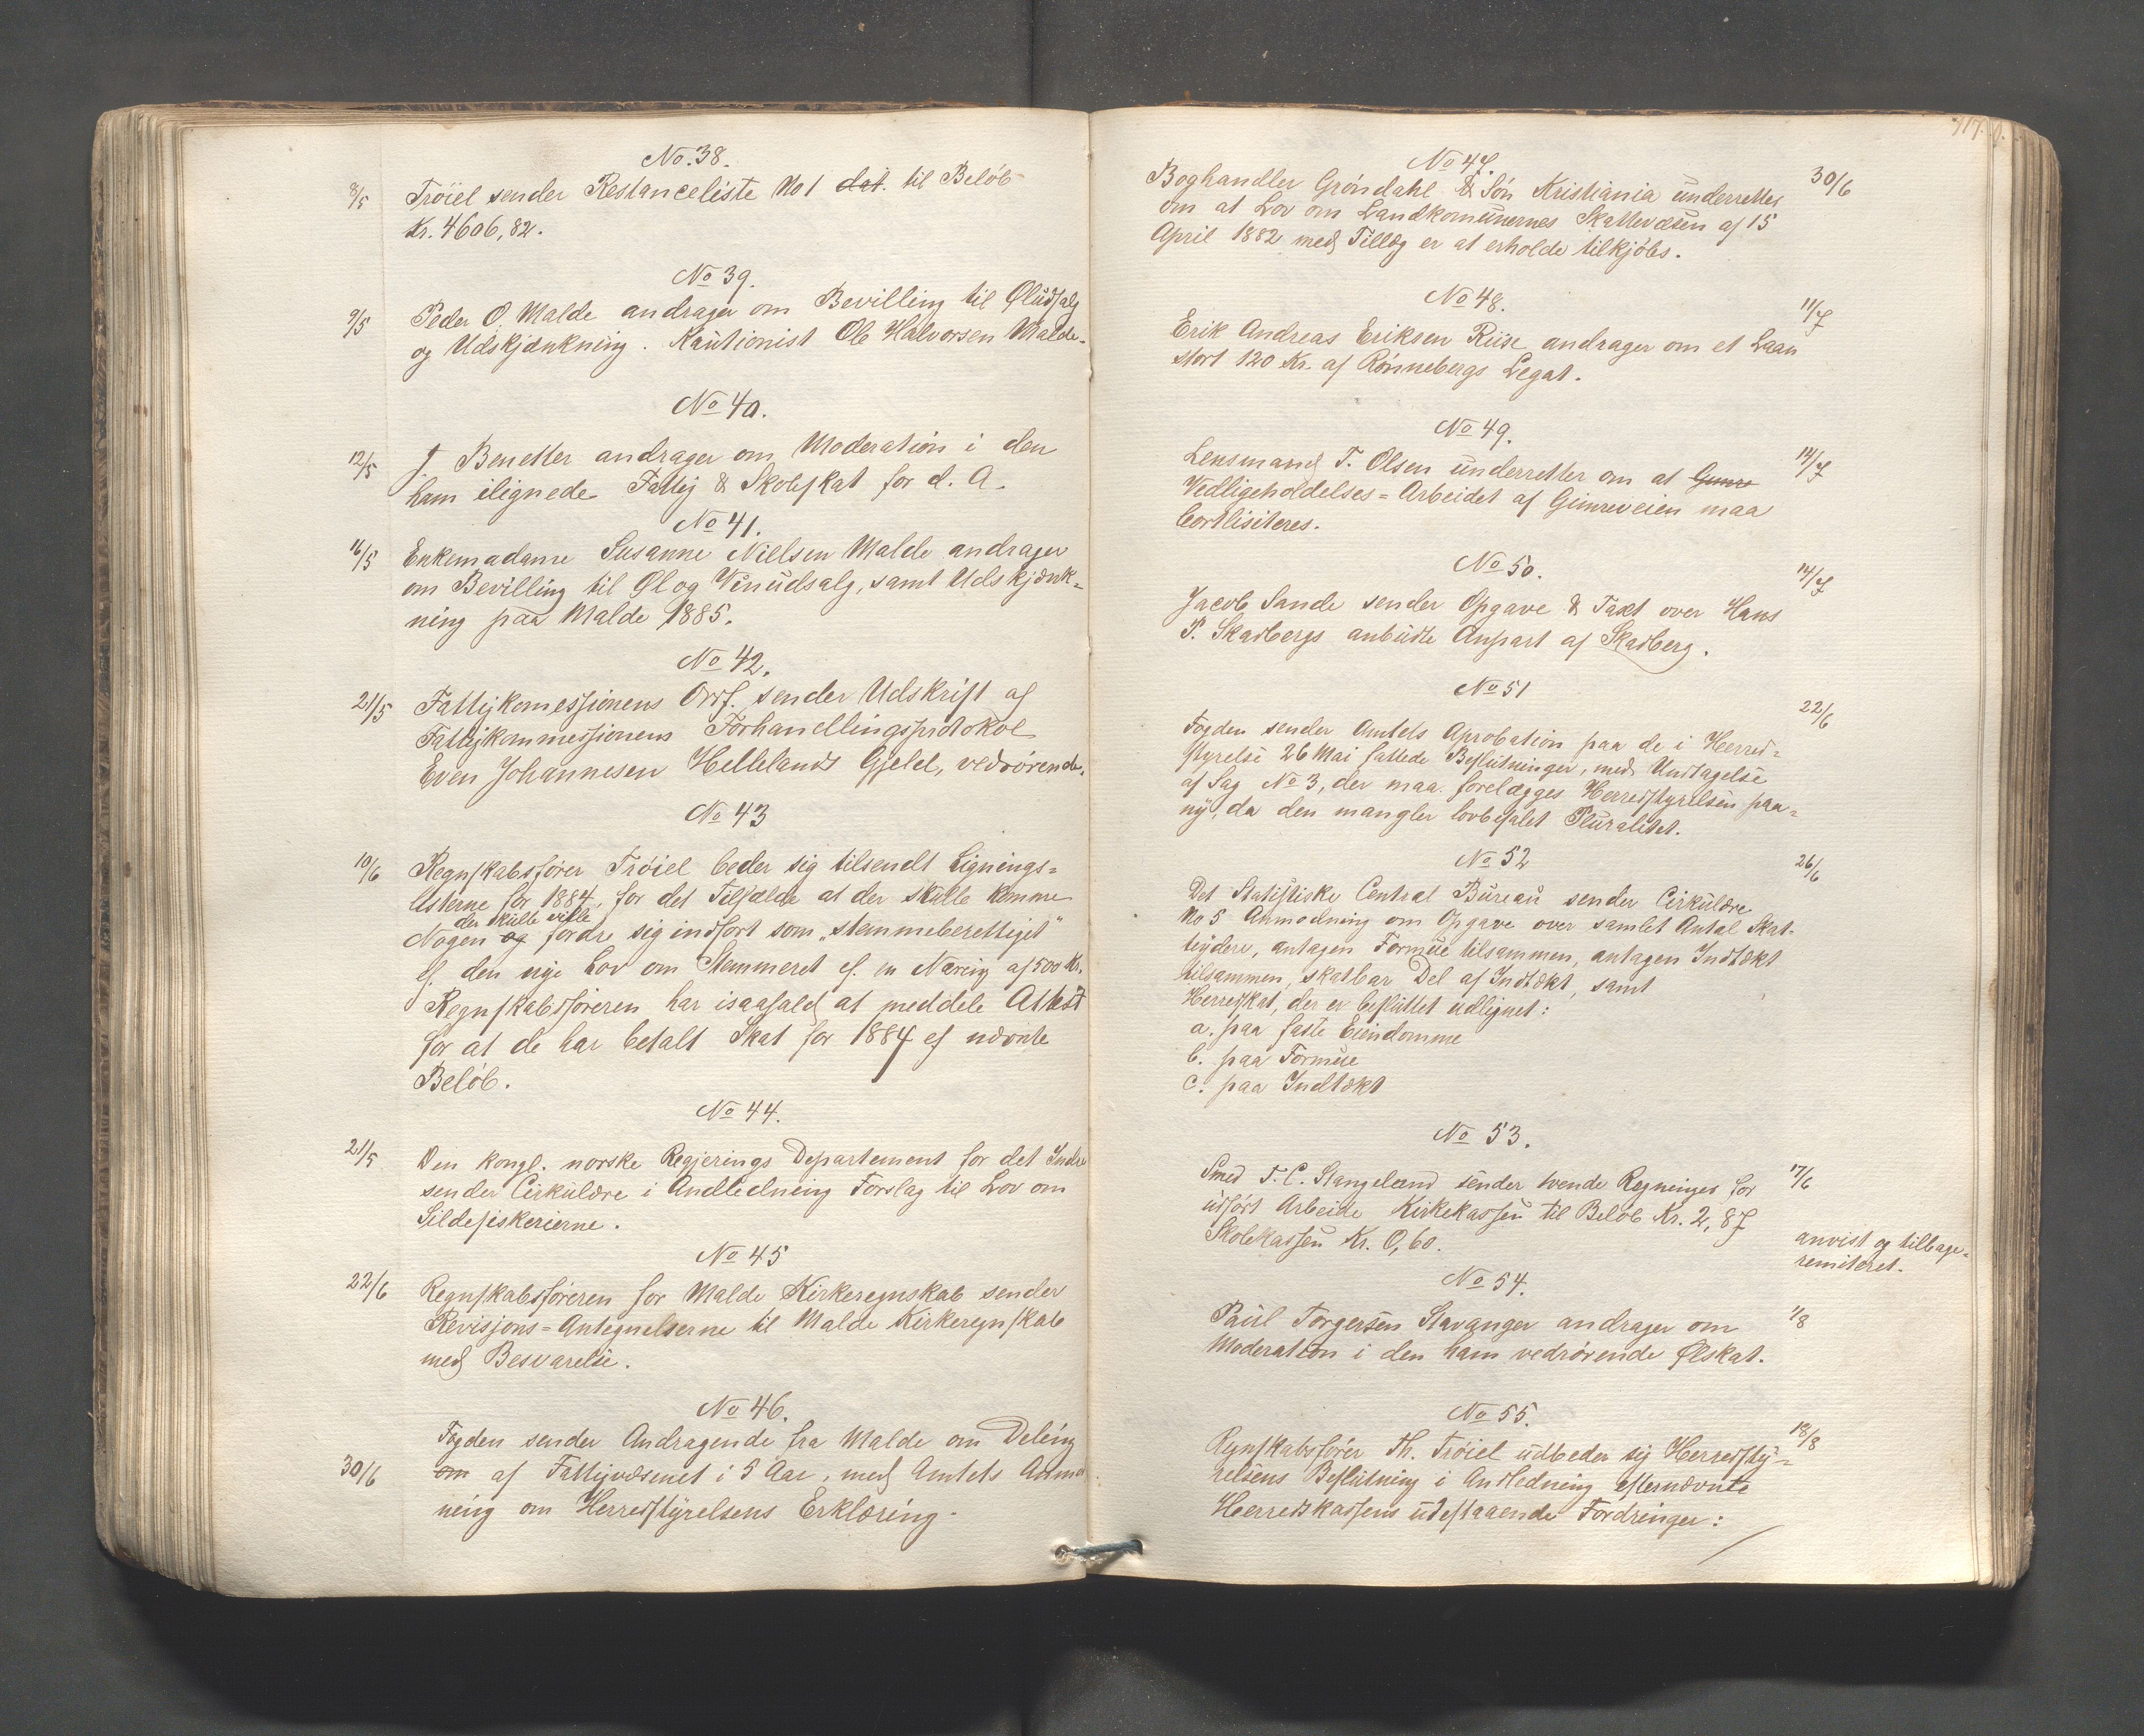 No. 38.
8/5 Tröiel sender Restanceliste No 1 dat. til Beløb
Kr. 4606,82.
No 39.
9/5 Peder O. Malde andrager om Bevilling til Øludsalg
og Udskjænkning. Kautionist Ole Halvorsen Malde.
No 40.
12/5 J. Benetter andrager om Moderation i den
ham ilignede Fattig & Skoleskat for d. A.
No 41.
16/5 Enkemadame Susanne Nielsen Malde andrager
om Bevilling til Øl og Vinudsalg, samt Udskjænk-
ning paa Malde 1885.
No 42.
21/5 Fattigkomessionens Orrf. sender Udskrift af
Fattigkommessionens Forhandlingsprotokol
Even Johannesen Hellelands Gjeld, vedrørende.
No 43
10/6 Regnskabsfører Tröiel beder sig tilsendt Lignings-
listerne for 1884, for det Tilfælde at der skulle komme
der skulle ville
Nogen og fordre sig indført som „stemmeberettiget"
ef. den nye Lov om Stemmeret ef. en Næring af 500 Kr.
Regnskabsføreren har isaafald at meddele Attest
for at de har betalt Skat for 1884 ef nævnte
Beløb.
No 44.
21/5 Den kongl. norske Regjerings Departement for det Indre
sender Cirkulære i Andledning Forslag til Lov om
Sildefiskerierne.
No 45
22/6 Regnskabsføreren for Malde Kirkeregnskab sender
Revisjons-Antegnelserne til Malde Kirkeregnskab
med Besvarelse.
No 46.
Fogden sender Andragende fra Malde om Deling
30/6 om af Fattigvæsenet i 5 Aar, med Amtets Anmod
ning om Herredstyrelsens Erklæring.
117.
No 47.
Boghandler Grøndahl & Søn Kristiania underretter 30/6
om at Lov om Landkomunernes Skattevæsen af 15
April 1882 med Tillæg er at erholde tilkjøbs.
No 48.
11/7
Erik Andreas Eriksen Riise andrager om et Laan
stort 120 Kr. af Rønnebergs Legat.
No 49.
Lensmand T. Olsen underretter om at Gimre 14/7
Vedligeholdelses-Arbeidet af Gimreveien maa
bortlisiteres.
No 50.
14/7
Jacob Sande sender Opgave & Taxt over Hans
P. Skadbergs anbudte Anpart af Skadberg.
No 51
22/6
Fogden sender Amtets Aprobation paa de i Herred-
styrelse 26 Mai fattede Beslutninger, med Undtagelse
af Sag No 3, der maa forelægges Herredstyrelsen paa-
ny, da den mangler lovbefalet Pluralitet.
No 52
26/6
Det Statistiske Central Bureau sender Cirkulære
No 5 Anmodning om Opgave over samlet Antal Skat-
teydere, antagen Formue tilsammen, antagen Indtækt
tilsammen, skatbar Del af Indtækt, samt
Herredskat, der er besluttet udlignet:
a. paa faste Eiendomme
b. paa Formue
c. paa Indtækt
No 53.
Smed T. C. Stangeland sender tvende Regninger for 17/6
udført Arbeide Kirkekassen til Beløb Kr. 2,87
Skolekassen Kr. 0,60.
anvist og tilbage-
remiteret.
No 54.
Paul Torgersen Stavanger andrager om 1/8
Moderation i den ham vedrørende Ølskat.
No 55.
18/8
Regnskabsfører Th. Tröiel udbeder sig Herredsty-
relsens Beslutning i Andledning efternævnte
Herredskassens udestaaende Fordringer: